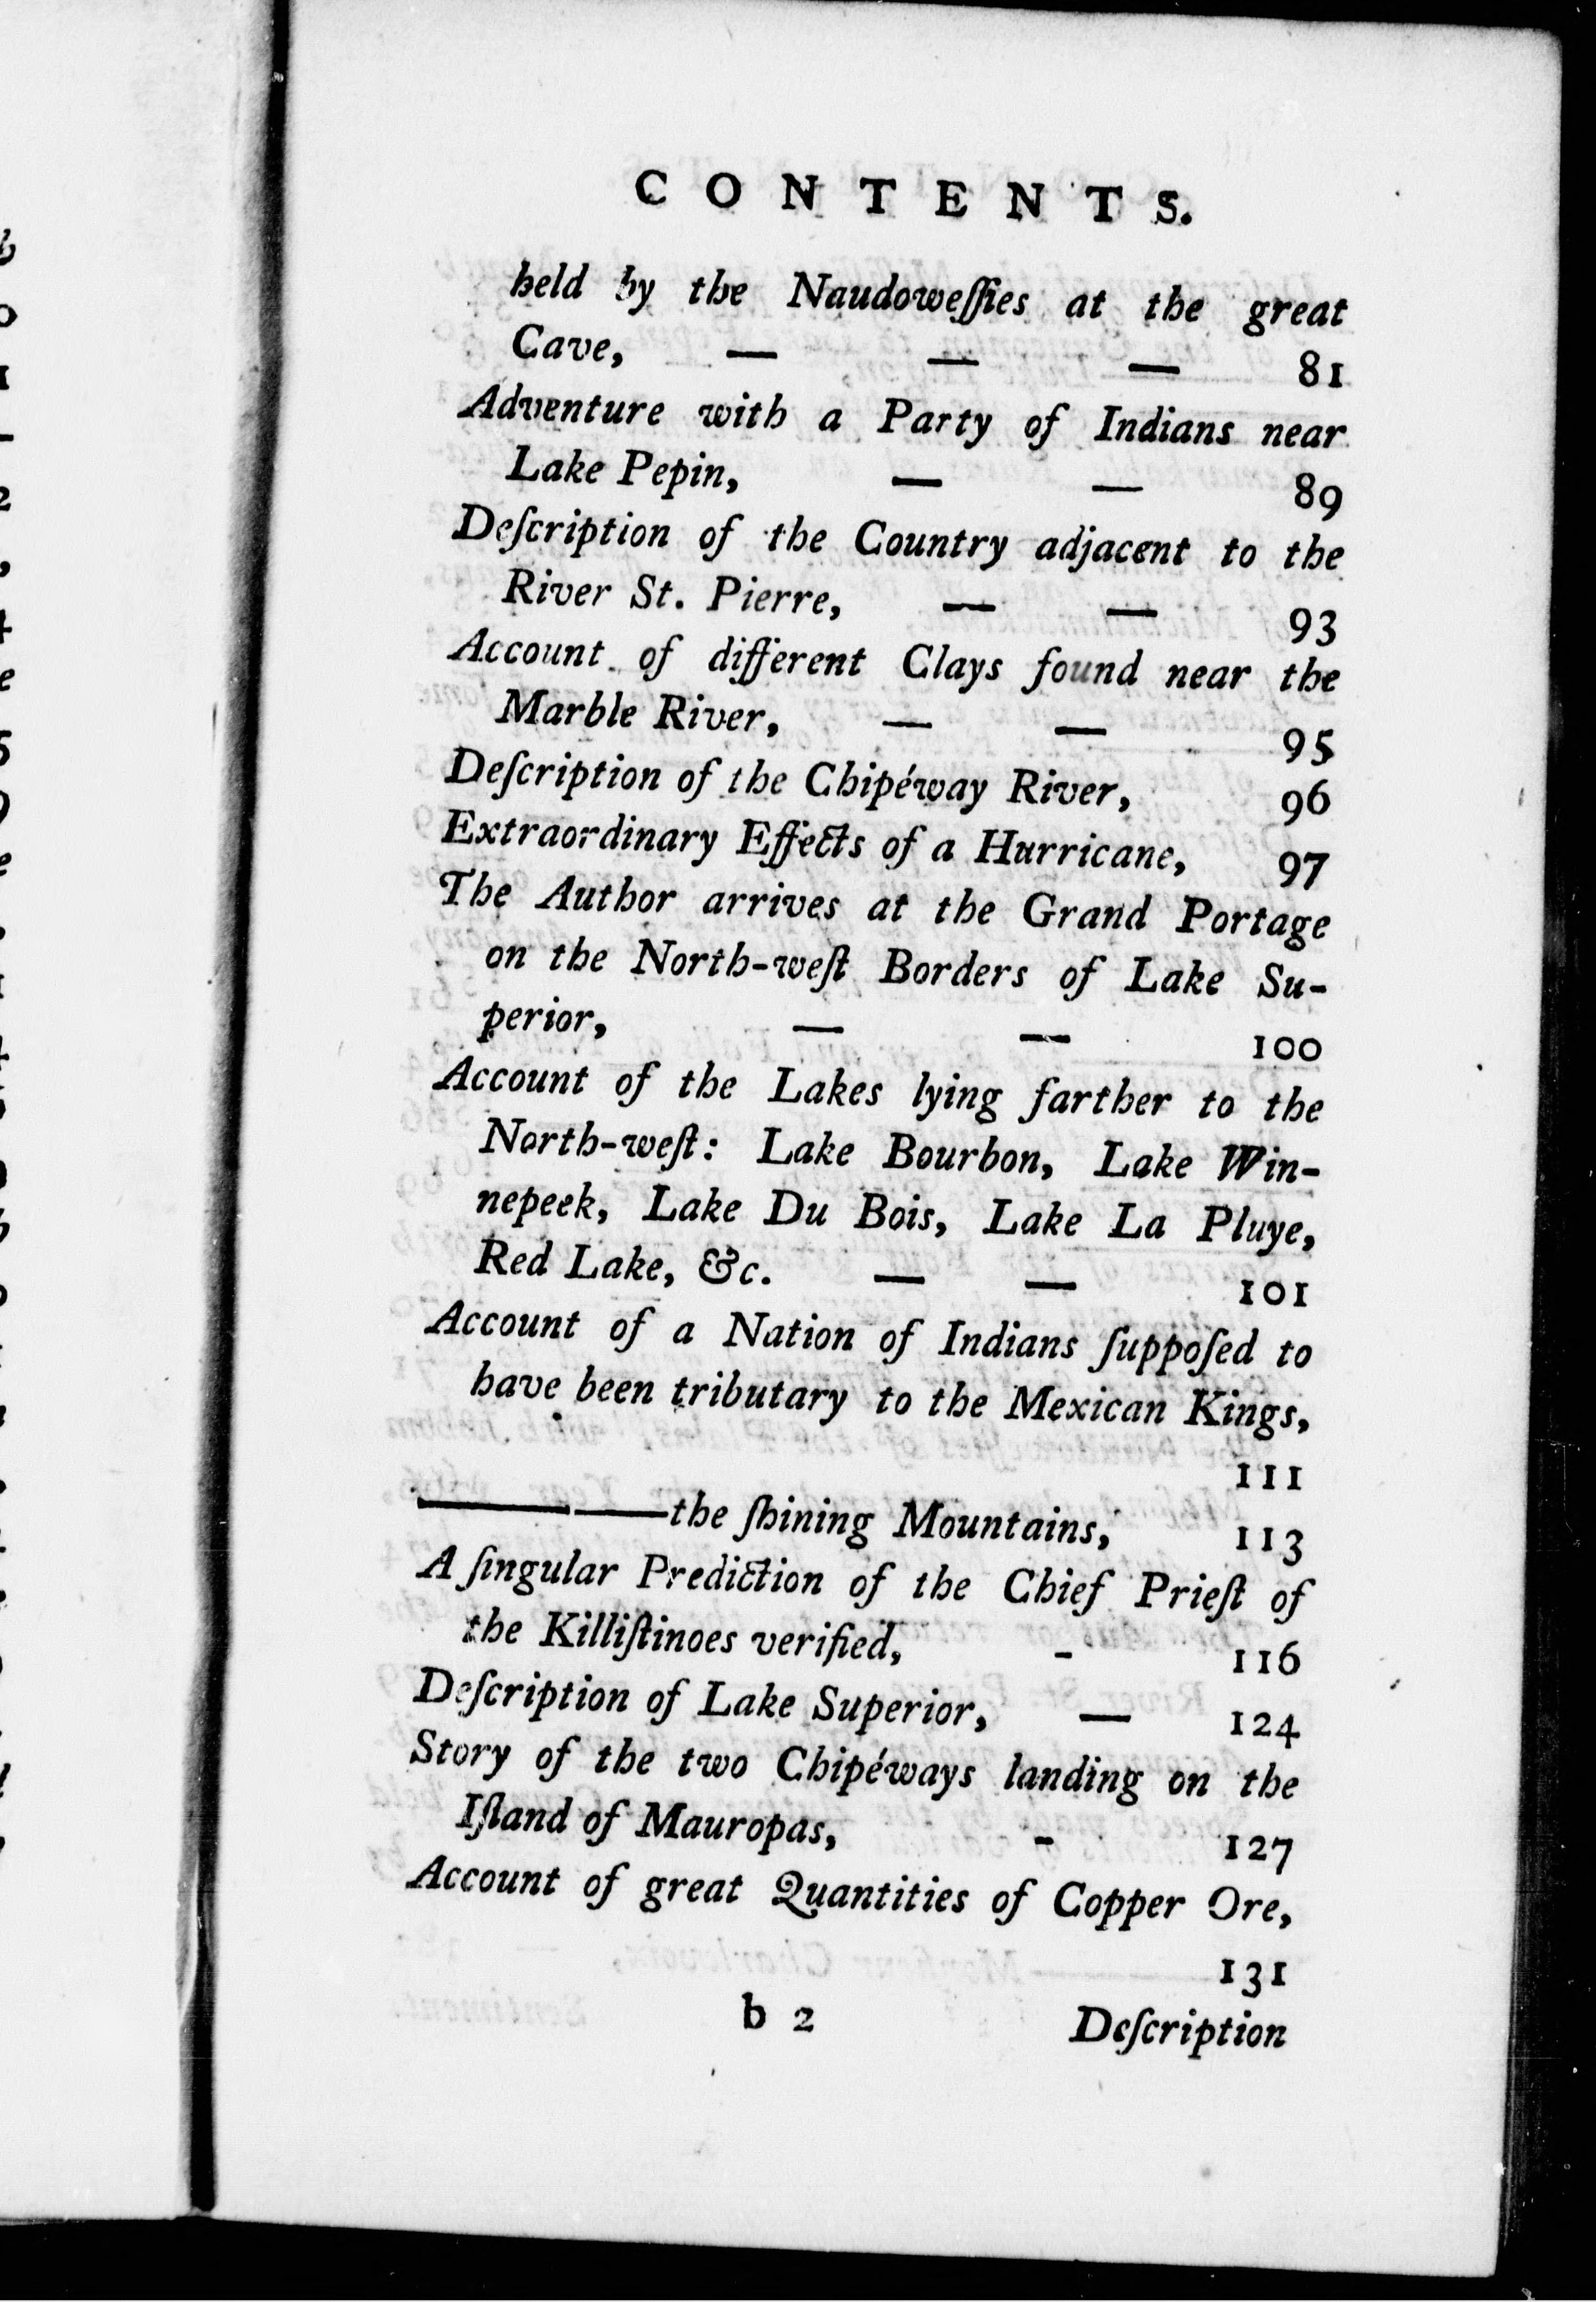 CONTENTS.
held by the Naudoweſſies at the great
Cave, — — — 81
Adventure with a Party of Indians near
Lake Pepin, — — 89
Deſcription of the Country adjacent to the
River St. Pierre, — — 93
Account of different Clays found near the
Marble River, — — 95
Deſcription of the Chipéway River, 96
Extraordinary Effects of a Hurricane, 97
The Author arrives at the Grand Portage
on the North-weſt Borders of Lake Su-
perior, — — 100
Account of the Lakes lying farther to the
North-weſt: Lake Bourbon, Lake Win-
nepeek, Lake Du Bois, Lake La Pluye,
Red Lake, &c. — — 101
Account of a Nation of Indians ſuppoſed to
have been tributary to the Mexican Kings,
111
——— ——the ſhining Mountains, 113
A ſingular Prediction of the Chief Prieſt of
the Killiſtinoes verified, - 116
Deſcription of Lake Superior, — 124
Story of the two Chipéways landing on the
Iſland of Mauropas, - 127
Account of great Quantities of Copper Ore,
131
b 2 Deſcription